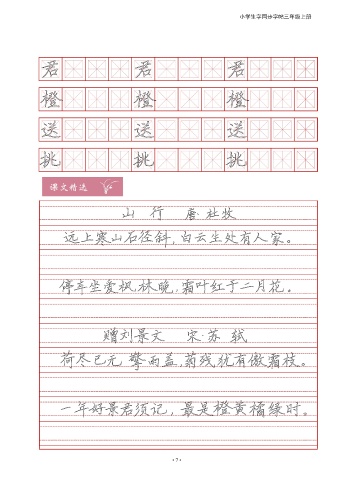 小学生字同步字帖三年级上册
君 君 君
橙 橙 橙
送 送 送
挑 挑 挑
课文精选
山 行 唐·杜牧
远上寒山石径斜,白云生处有人家。
停车坐爱枫林晚,霜叶红于二月花。
赠刘景文 宋·苏 轼
荷尽已无擎雨盖,菊残犹有傲霜枝。
一年好景君须记,最是橙黄橘绿时。
·7·